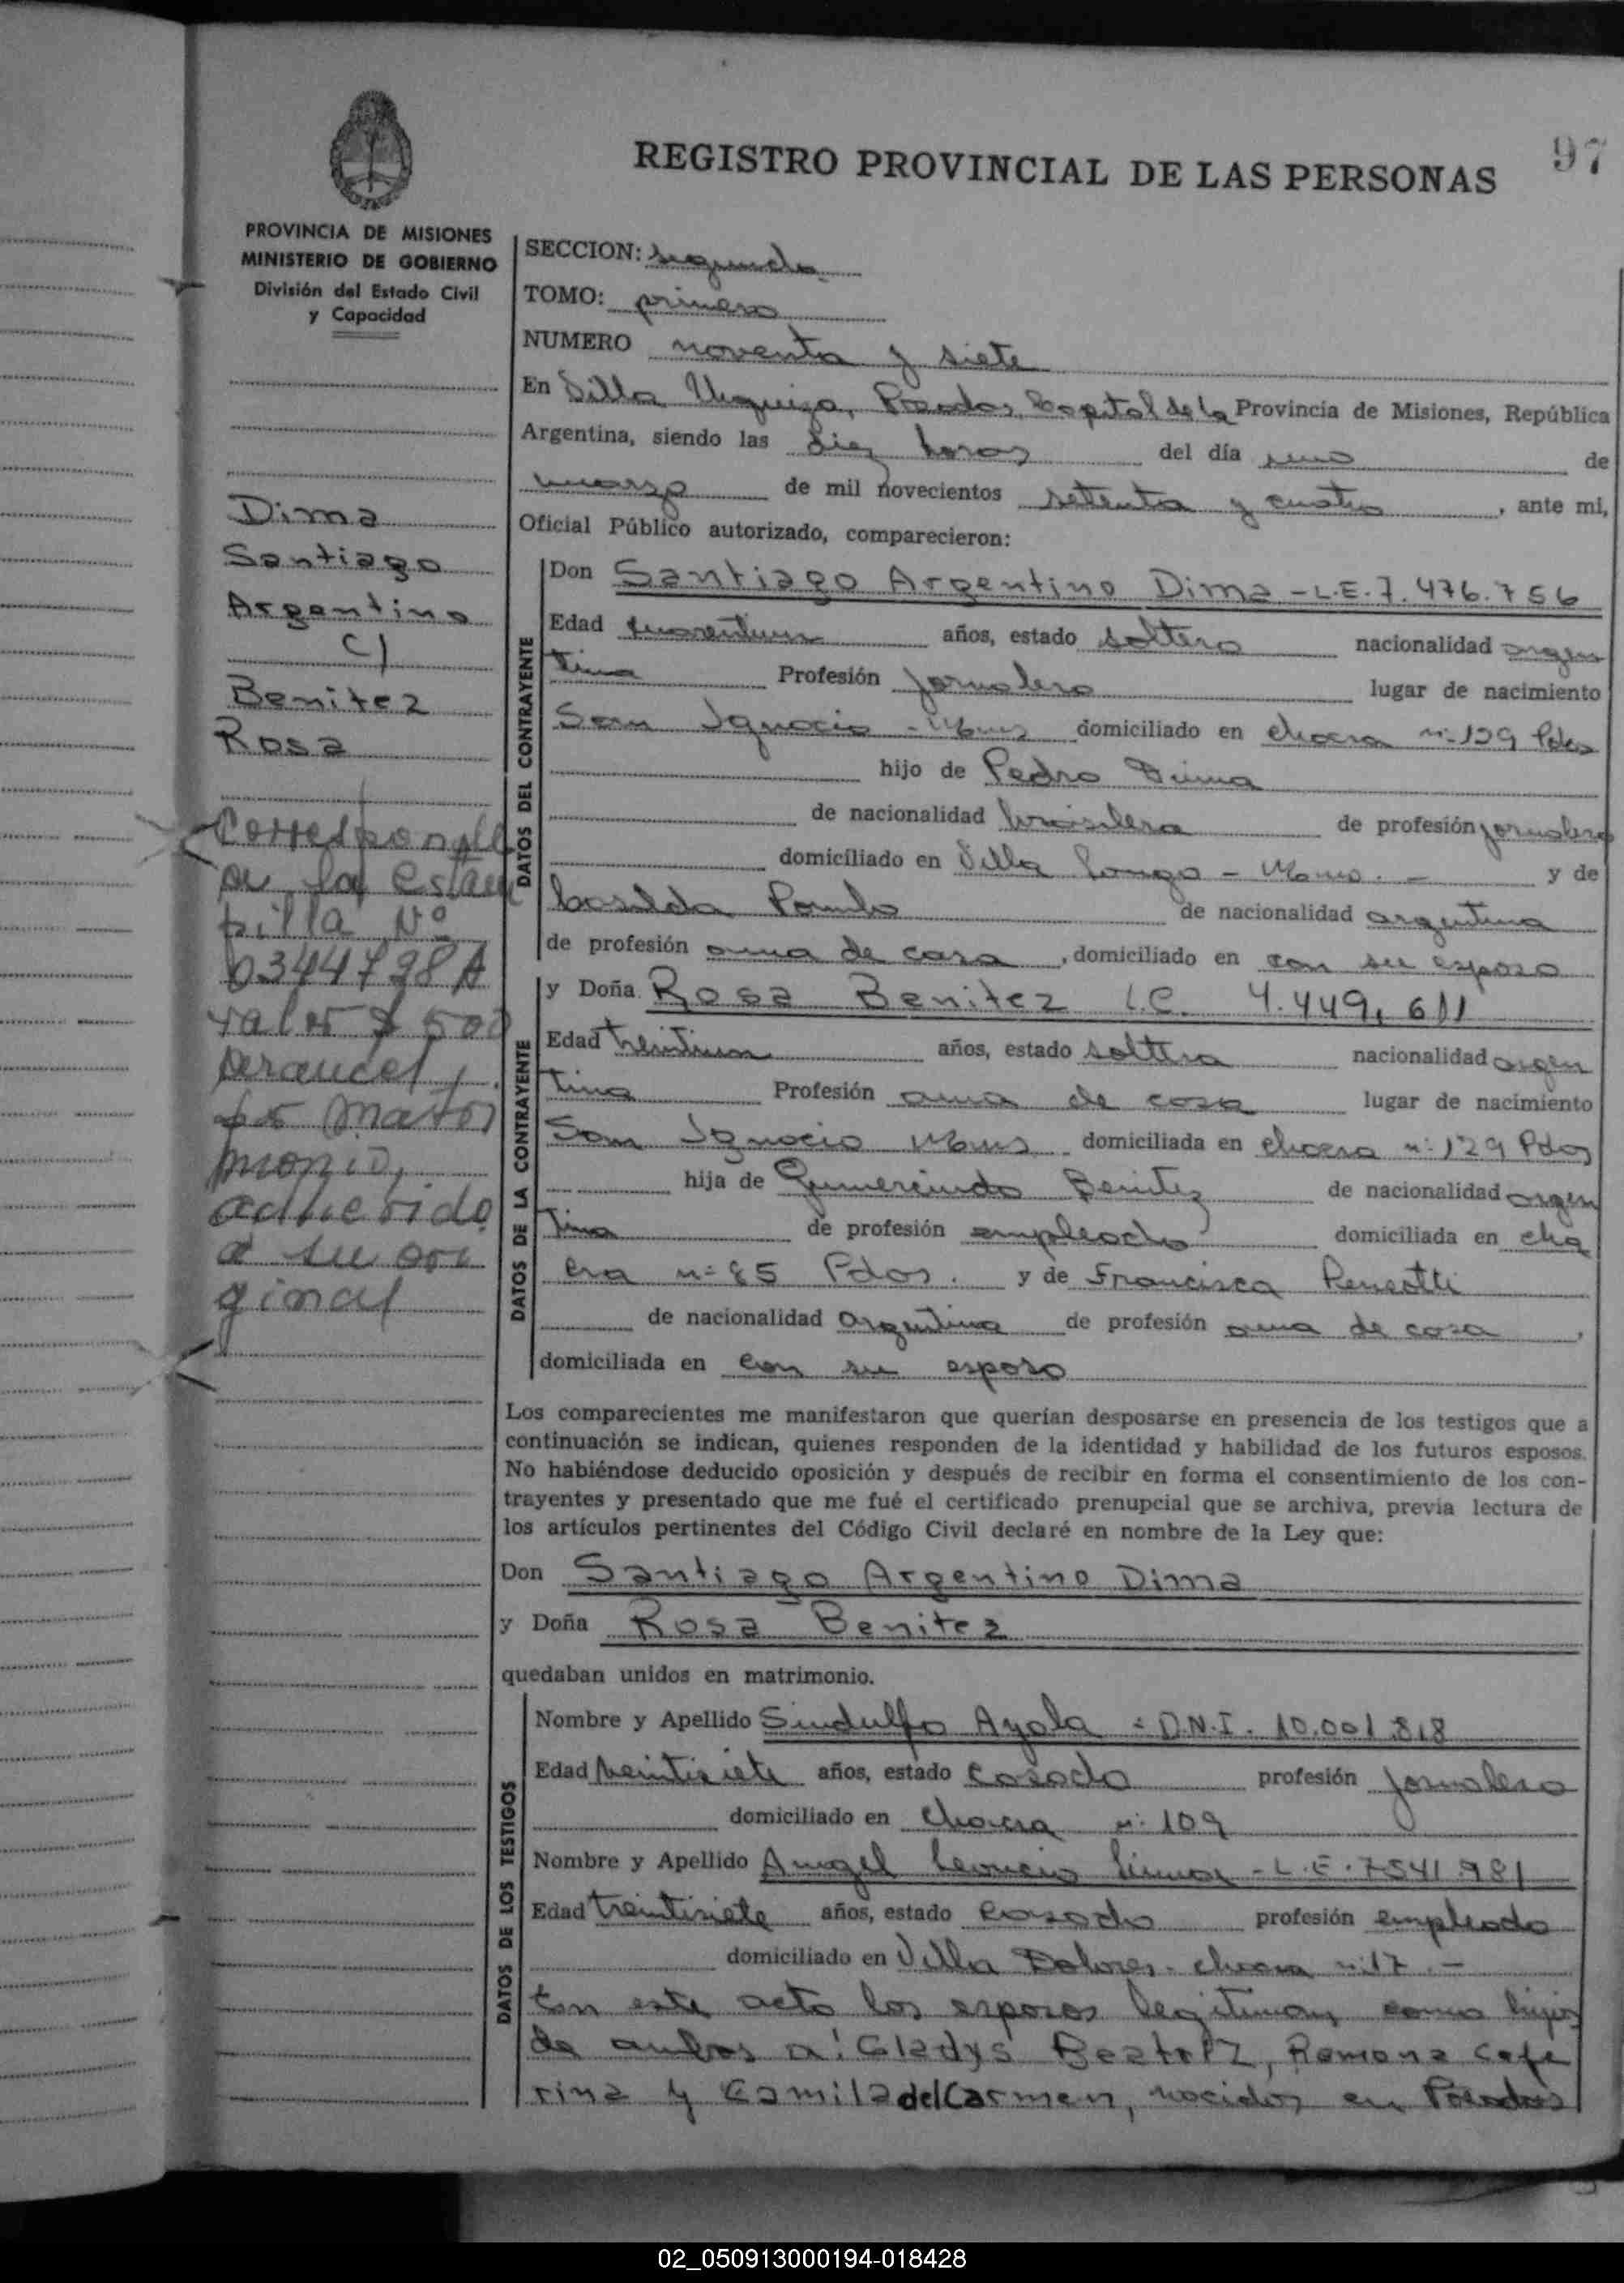 97
REGISTRO PROVINCIAL DE LAS PERSONAS
PROVINCIA DE MISIONES
MINISTERIO DE GOBIERNO
División del Estado Civil
y Capacidad
Dima
Santiago
Argentino
C/
Benitez
Rosa
Corresponde
a la estam
pilla Nº
0344798A
valor $ 500
arancel
por matri
monio,
adherido
a su ori
ginal
SECCION: segunda
TOMO: primero
NUMERO noventa y siete
En Villa Urquiza, Posadas Capital de la Provincia de Misiones, República
Argentina, siendo las diez horas del día uno de
marzo de mil novecientos setenta y cuatro, ante mi,
Oficial Público autorizado, comparecieron:
DATOS DEL CONTRAYENTE
Don Santiago Argentino Dima - L.E. 7.476.756
Edad cuarentiun años, estado soltero nacionalidad argen
tina Profesión jornalero lugar de nacimiento
San Ignacio - Mnes domiciliado en chacra nº 129 Pdas
hijo de Pedro Dima
de nacionalidad brasilera de profesión jornalero
domiciliado en Villa Longa - Mnes. - y de
Casilda de nacionalidad argentina
de profesión ama de casa, domiciliado en con su esposo
DATOS DE LA CONTRAYENTE
y Doña Rosa Benitez L.C. 4.449.611
Edad treintiun años, estado soltera nacionalidad argen
tina Profesión ama de casa lugar de nacimiento
San Ignacio Mnes domiciliada en chacra nº 129 Pdas
hija de Gumercindo Benitez de nacionalidad argen
tina de profesión empleado domiciliada en cha
cra nº 85 Pdas. y de Francisca
de nacionalidad argentina de profesión ama de casa,
domiciliada en con su esposo
Los comparecientes me manifestaron que querían desposarse en presencia de los testigos que a
continuación se indican, quienes responden de la identidad y habilidad de los futuros esposos.
No habiéndose deducido oposición y después de recibir en forma el consentimiento de los con-
trayentes y presentado que me fué el certificado prenupcial que se archiva, previa lectura de
los artículos pertinentes del Código Civil declaré en nombre de la Ley que:
Don Santiago Argentino Dima
y Doña Rosa Benitez
quedaban unidos en matrimonio.
DATOS DE LOS TESTIGOS
Nombre y Apellido Sindulfo Ayala = D.N.I. 10.001.818
Edad veintisiete años, estado casado profesión jornalero
domiciliado en chacra nº 109
Nombre y Apellido Angel - L.E. 7541.981
Edad treintisiete años, estado casado profesión empleado
domiciliado en Villa Dolores - chacra nº 17. -
En este acto los esposos legitiman como hijos
de ambos a: Gladys Beatriz, Ramona Cefe
rina y Camila del Carmen, nacidos en Posadas
02_050913000194-018428